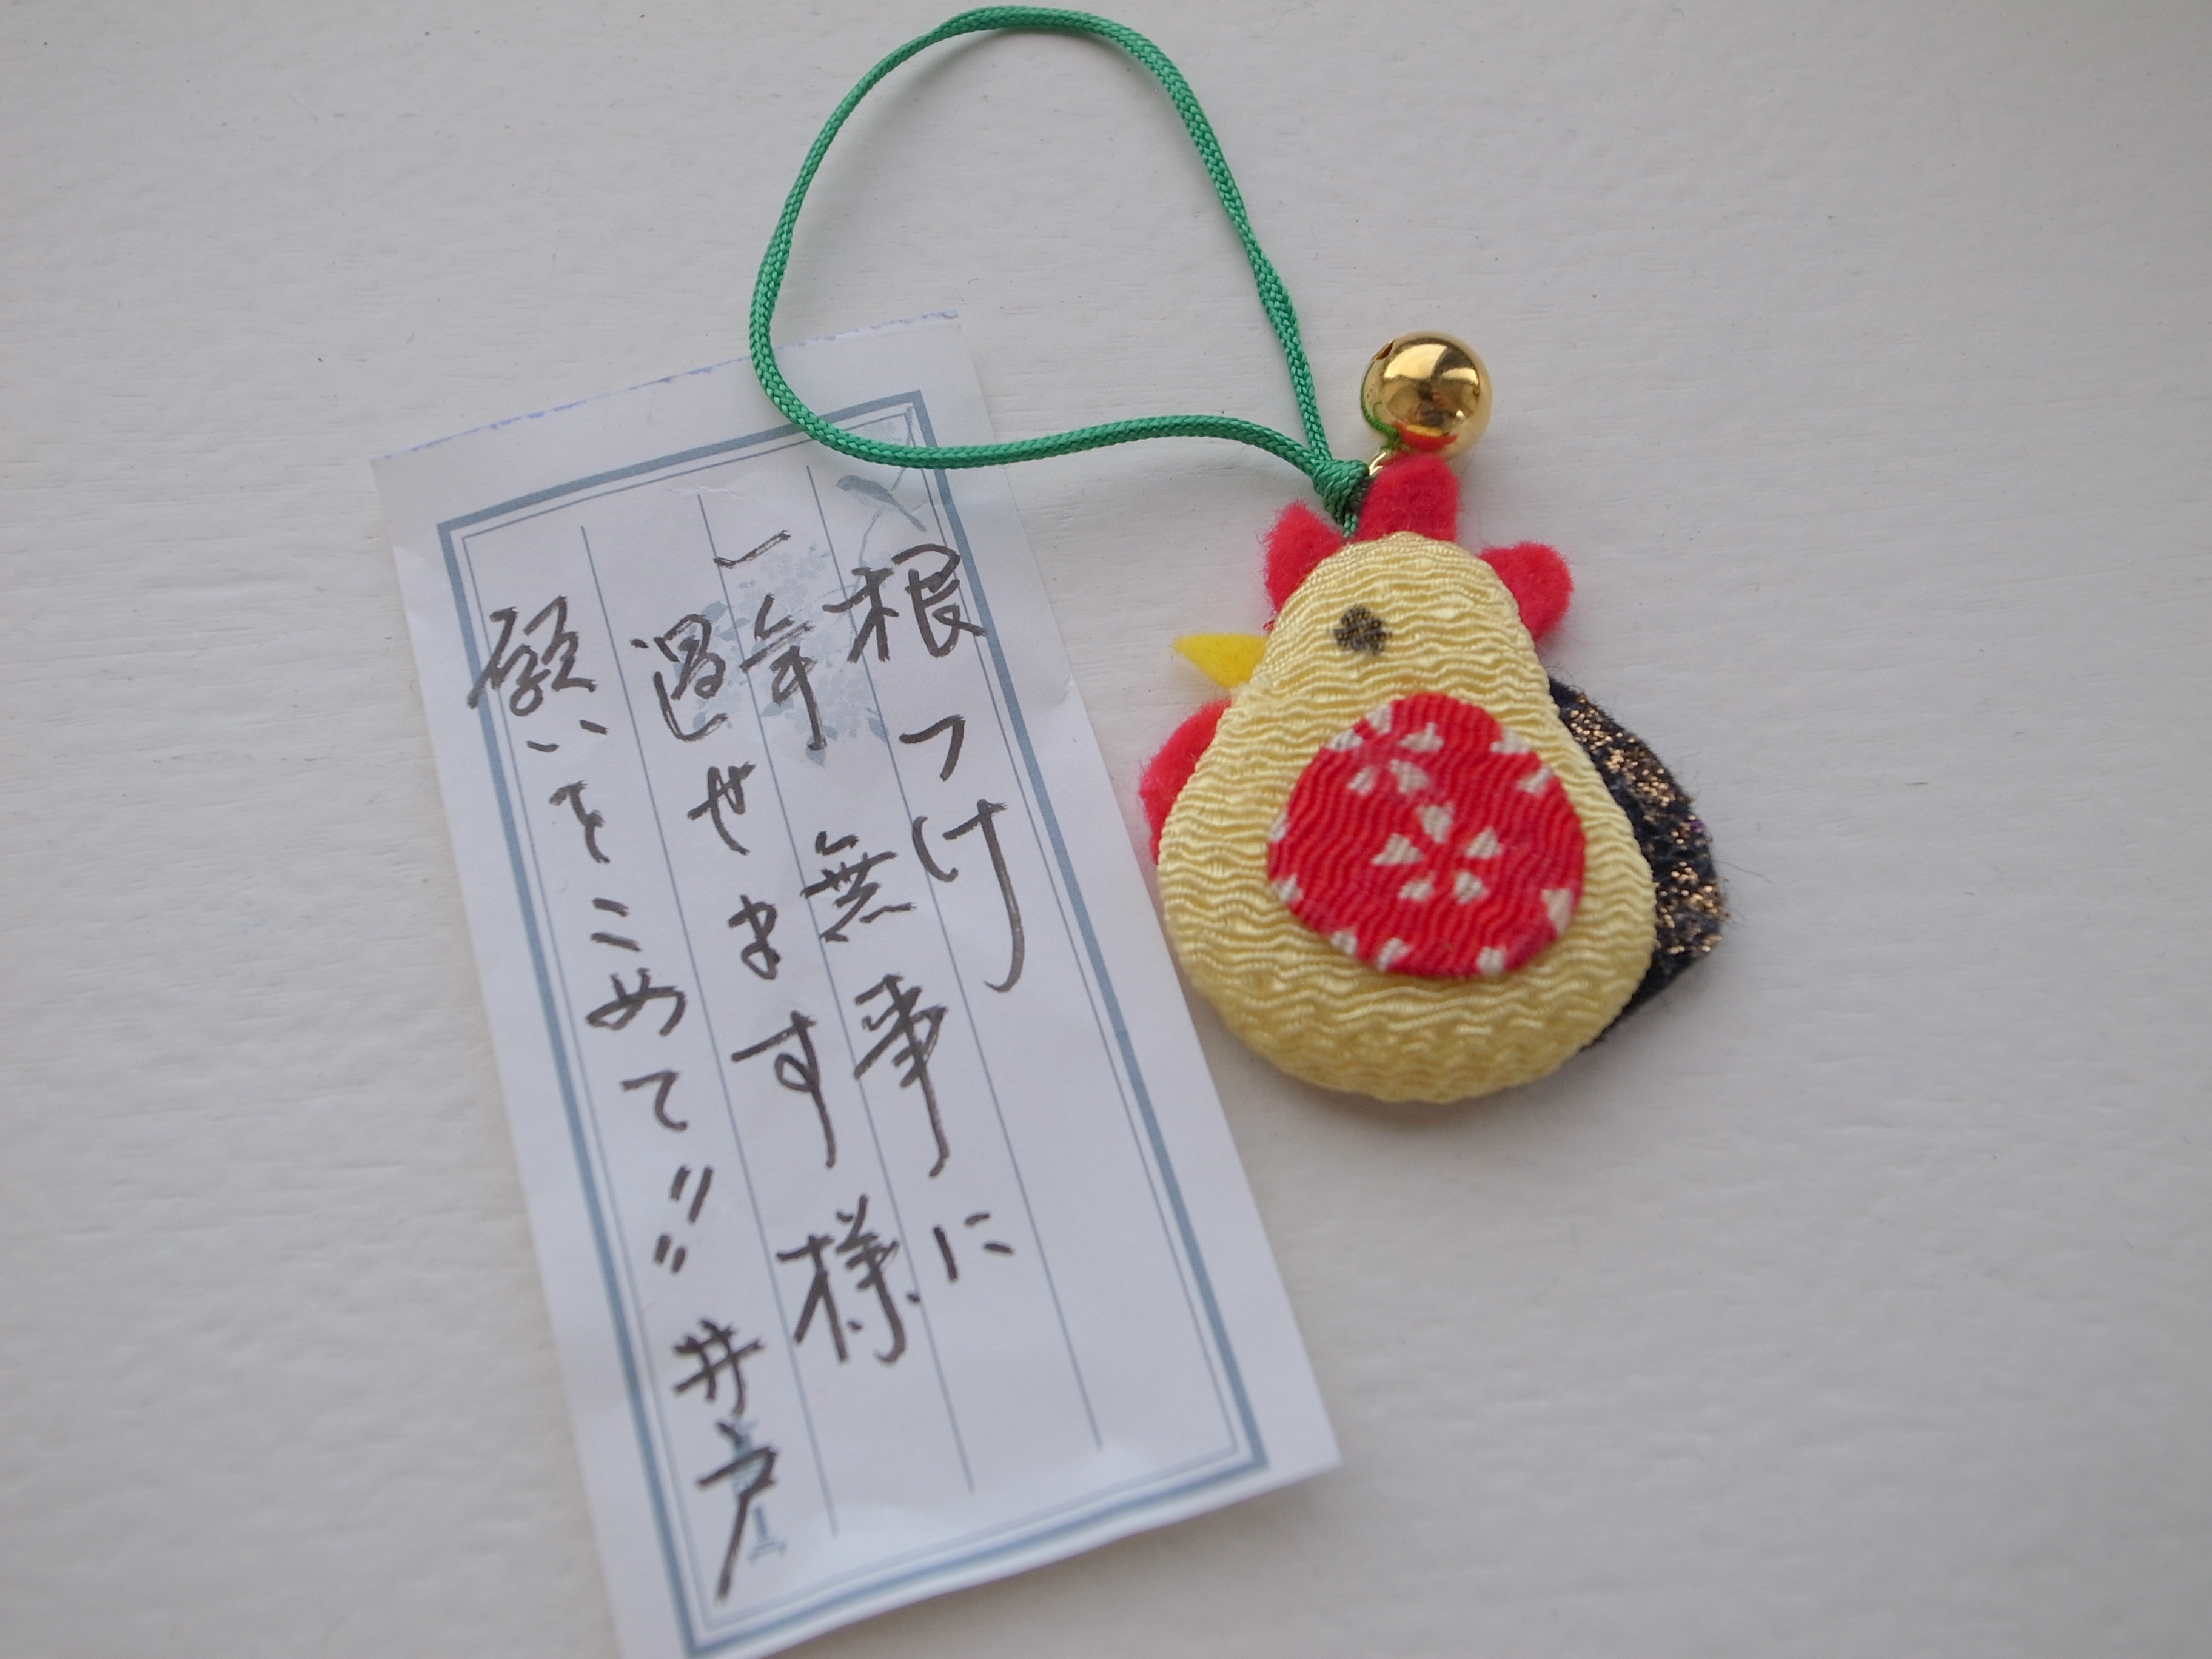 根つけ
一年無事に
過せます様
願いをこめて〃〃井戸